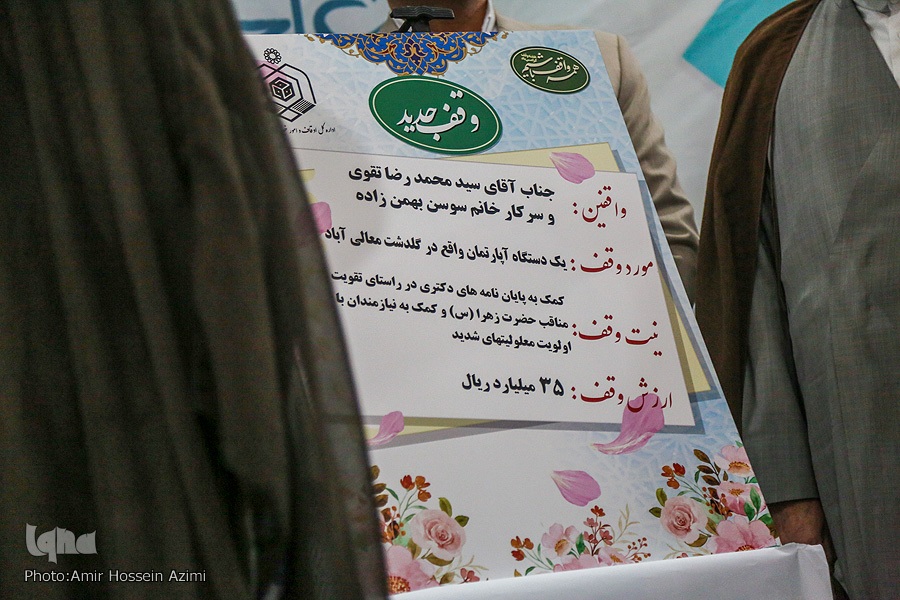 همه واقف باشیم
وقف جدید
اداره کل اوقاف و امور
واقفین: جناب آقای سید محمد رضا تقوی
و سرکار خانم سوسن بهمن زاده
مورد وقف: یک دستگاه آپارتمان واقع در گلدشت معالی آباد
نیت وقف: کمک به پایان نامه های دکتری در راستای تقویت
مناقب حضرت زهرا (س) و کمک به نیازمندان با
اولویت معلولیتهای شدید
ارزش وقف: ۳۵ میلیارد ریال
iqna
Photo:Amir Hossein Azimi